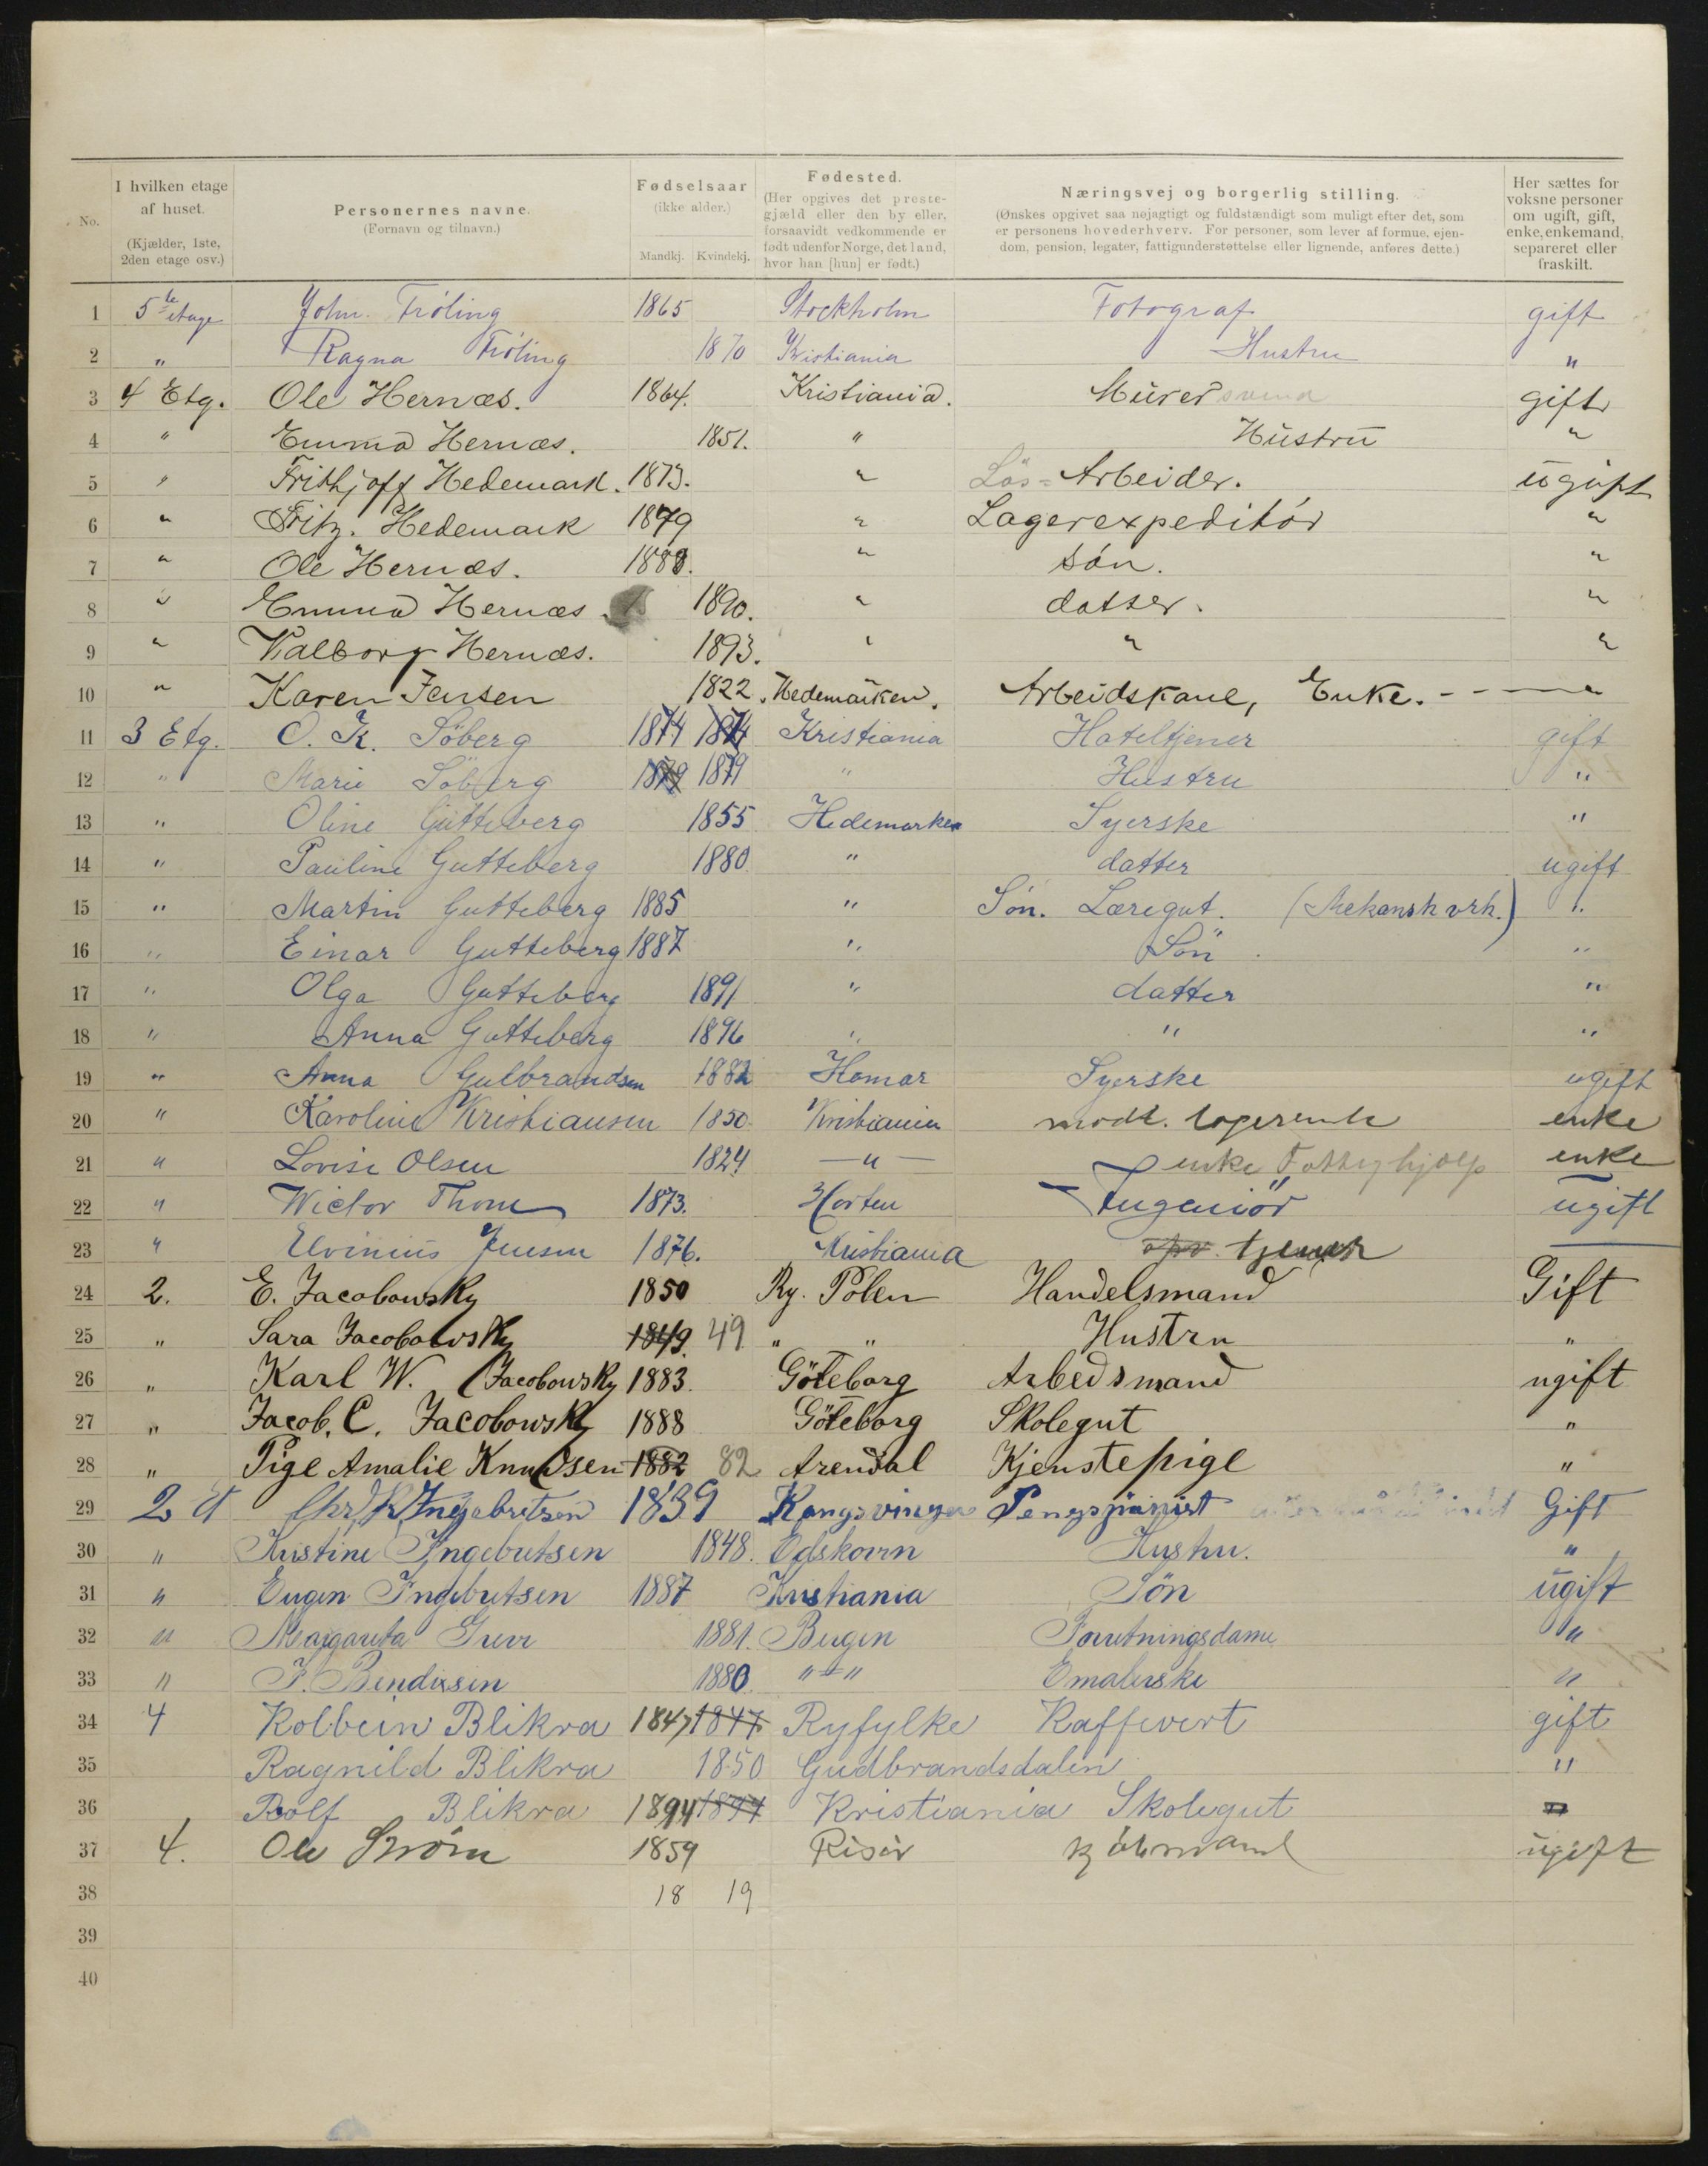 No.
I hvilken etage af huset.
(Kjælder, 1ste, 2den etage osv.)
Personernes navne.
(Fornavn og tilnavn.)
Fødselsaar
(ikke alder.)
Mandkj. Kvindekj.
Fødested.
(Her opgives det prestegjæld eller den by eller, forsaavidt vedkommende er født udenfor Norge, det land, hvor han [hun] er født.)
Næringsvej og borgerlig stilling.
(Ønskes opgivet saa nøjagtigt og fuldstændigt som muligt efter det, som er personens hovederhverv. For personer, som lever af formue, ejendom, pension, legater, fattigunderstøttelse eller lignende, anføres dette.)
Her sættes for voksne personer om ugift, gift, enke, enkemand, separeret eller fraskilt.
1 5te etage John Fröling 1865 Stockholm Fotograf gift
2 " Ragna Fröling 1870 Kristiania Hustru "
3 4 Etg. Ole Hernæs. 1864. Kristiania. Murersvend gift
4 " Emma Hernæs. 1851. " Hustru "
5 " Frithjoff Hedemark. 1873. " Løs=Arbeider. ugift
6 " Fritz. Hedemark 1879 " Lagerexpeditør "
7 " Ole Hernæs. 1888. " søn. "
8 " Emma Hernæs. 1890. " datter. "
9 " Valborg Hernæs. 1893. " " "
10 " Karen Jensen 1822. Hedemarken. Arbeidskone, Enke. - - - "
11 3 Etg. O. K. Söberg 1874 1874 Kristiania Hoteltjener gift
12 " Marie Söberg 1879 1879 " Hustru "
13 " Oline Gutteberg 1855 Hedemarken Syerske "
14 " Pauline Gutteberg 1880 " datter ugift
15 " Martin Gutteberg 1885 " Søn. Læregut. (Mekansk vrk.) "
16 " Einar Gutteberg 1887 " Søn "
17 " Olga Gutteberg 1891 " datter "
18 " Anna Gutteberg 1896 " " "
19 " Anna Gulbrandsen 1882 Hamar Syerske ugift
20 " Karoline Kristiansen 1850. Kristiania modt. logerende enke
21 " Lovise Olsen 1824 — " — enke Fattighjælp enke
22 " Wictor Thom 1873. Horten Ingeniør ugift
23 " Elvinius Jensen 1876. Kristiania opv. tjener
24 2. E. Jacobowsky 1850 Ry. Polen Handelsmand Gift
25 " Sara Jacobowsky 1849. 49 " " Hustru "
26 " Karl W. Jacobowsky 1883. Göteborg Arbedsmand ugift
27 " Jacob. C. Jacobowsky 1888 Göteborg Skolegut "
28 " Pige Amalie Knudsen 1882 82 Arendal Kjenstepige "
29 2 et Chr. K Ingebretsen 1839 Kongsvinger Gift
30 " Kristine Ingebretsen 1848. Odskovn Hustru. "
31 " Eugen Ingebretsen 1887 Kristiania Søn ugift
32 " Margareta 1881. Bergen Forretningsdame "
33 " J. Bendixsen 1880 " - " Emalerske "
34 4 Kolbein Blikra 1847 1847 Ryfylke Kaffevert gift
35 Ragnild Blikra 1850 Gudbrandsdalen "
36 Rolf Blikra 1894 1894 Kristiania Skolegut "
37 4. Ole Strøm 1859 Risør ugift
38 18 19
39
40